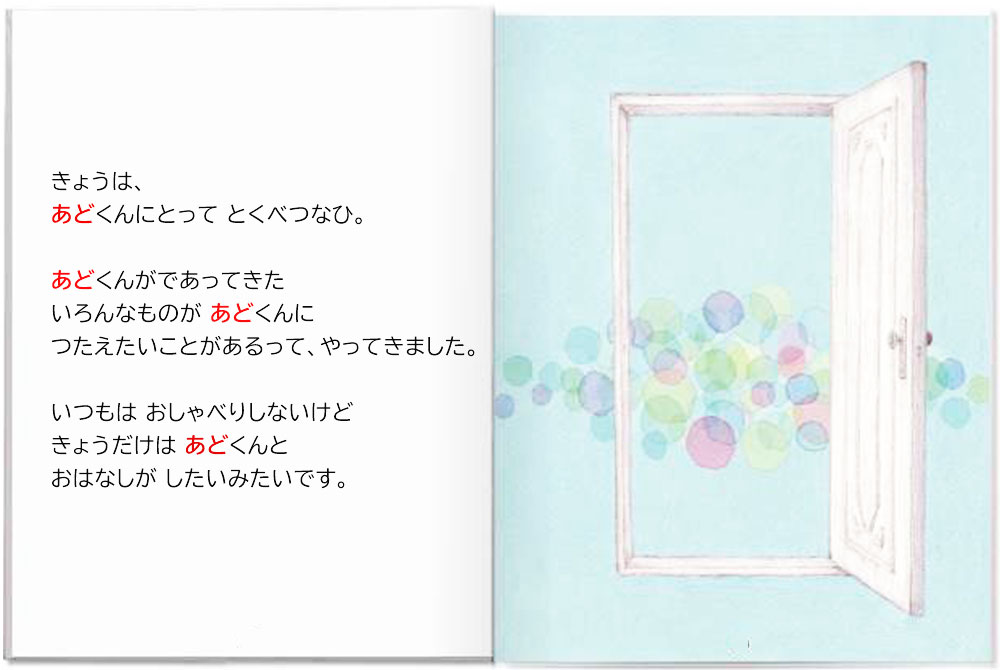 きょうは、
あどくんにとって とくべつなひ。
あどくんがであってきた
いろんなものが あどくんに
つたえたいことがあるって、やってきました。
いつもは おしゃべりしないけど
きょうだけは あどくんと
おはなしが したいみたいです。